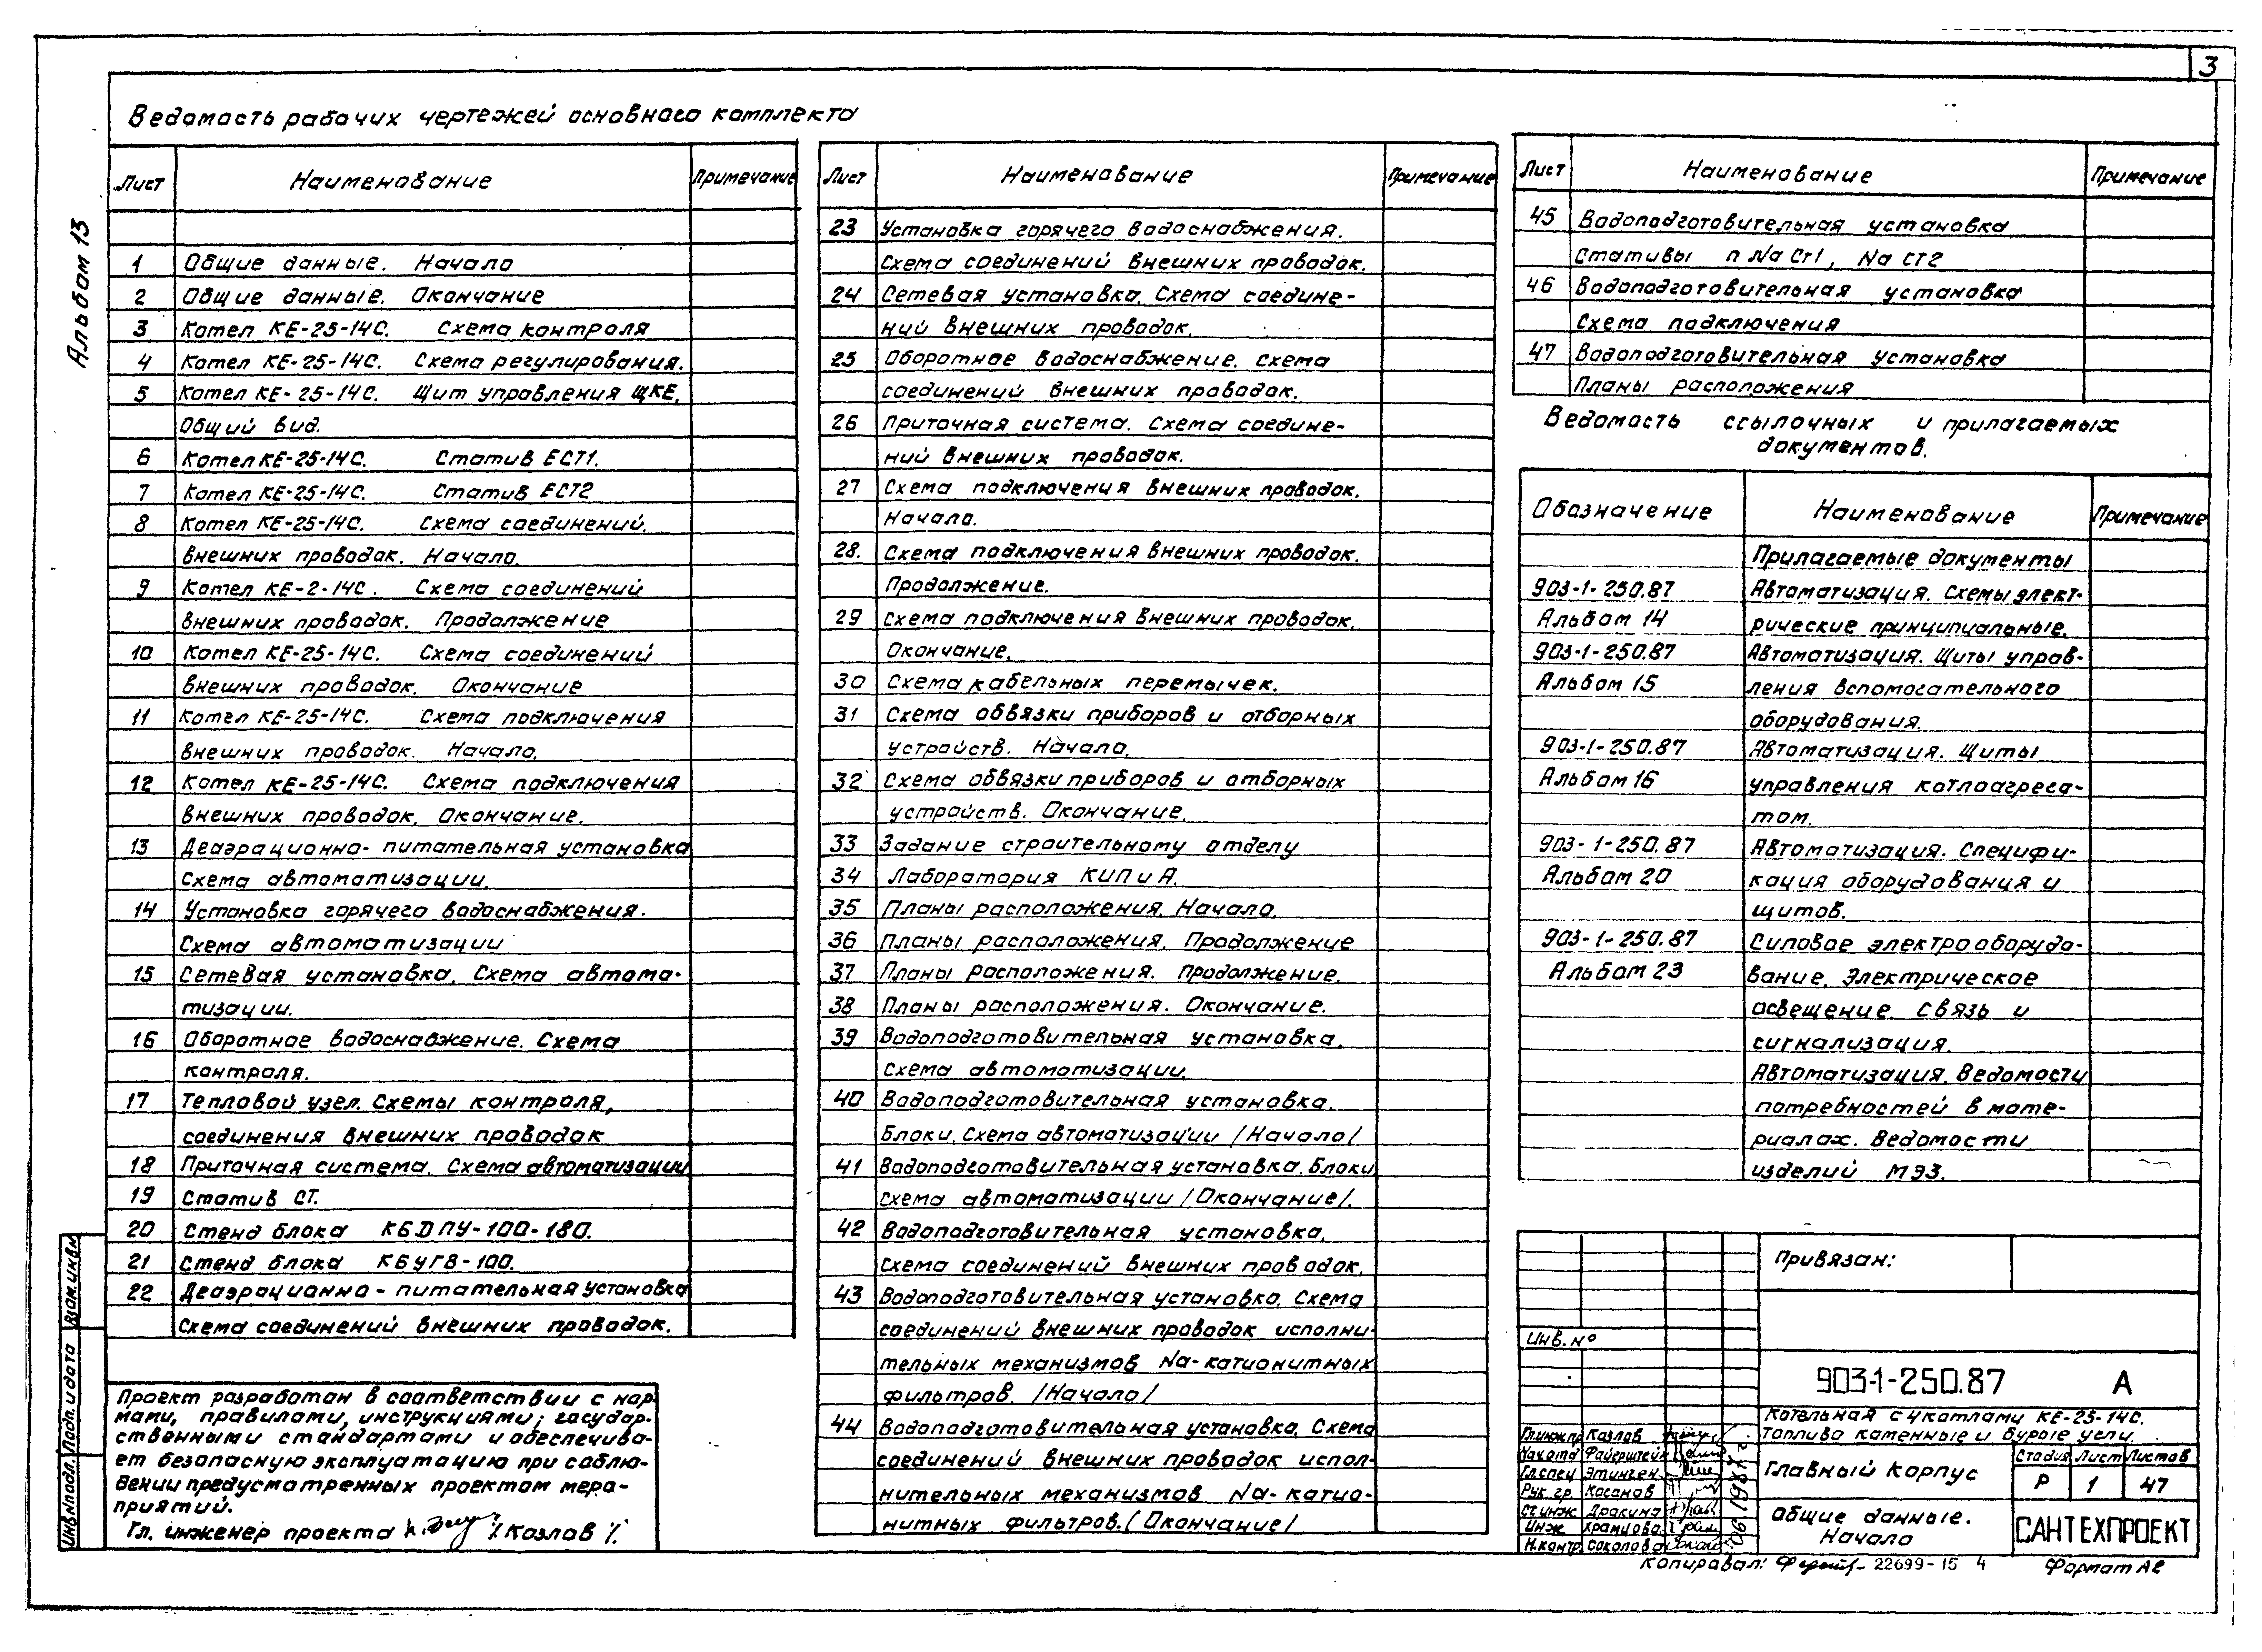 3
Альбом 13
Ведомость рабочих чертежей основного комплекта
Лист Наименование Примечание
1 Общие данные. Начало
2 Общие данные. Окончание
3 Котел КЕ-25-14С. Схема контроля
4 Котел КЕ-25-14С. Схема регулирования.
5 Котел КЕ-25-14С. Щит управления ЩКЕ.
Общий вид.
6 Котел КЕ-25-14С. Статив ЕСТ1.
7 Котел КЕ-25-14С. Статив ЕСТ2
8 Котел КЕ-25-14С. Схема соединений.
внешних проводок. Начало.
9 Котел КЕ-2-14С. Схема соединений
внешних проводок. Продолжение
10 Котел КЕ-25-14С. Схема соединений
внешних проводок. Окончание
11 Котел КЕ-25-14С. Схема подключения
внешних проводок. Начало.
12 Котел КЕ-25-14С. Схема подключения
внешних проводок. Окончание.
13 Деаэрационно-питательная установка
Схема автоматизации.
14 Установка горячего водоснабжения.
Схема автоматизации
15 Сетевая установка. Схема автома-
тизации.
16 Оборотное водоснабжение. Схема
контроля.
17 Тепловой узел. Схемы контроля,
соединения внешних проводок
18 Приточная система. Схема автоматизации
19 Статив СТ.
20 Стенд блока КБДПУ-100-180.
21 Стенд блока КБУГВ-100.
22 Деаэрационно-питательная установка
Схема соединений внешних проводок.
Лист Наименование Примечание
23 Установка горячего водоснабжения.
Схема соединений внешних проводок.
24 Сетевая установка. Схема соедине-
ний внешних проводок.
25 Оборотное водоснабжение. Схема
соединений внешних проводок.
26 Приточная система. Схема соедине-
ний внешних проводок.
27 Схема подключения внешних проводок.
Начало.
28. Схема подключения внешних проводок.
Продолжение.
29 Схема подключения внешних проводок.
Окончание.
30 Схема кабельных перемычек.
31 Схема обвязки приборов и отборных
устройств. Начало.
32 Схема обвязки приборов и отборных
устройств. Окончание.
33 Задание строительному отделу
34 Лаборатория КИП и А.
35 Планы расположения. Начало.
36 Планы расположения. Продолжение
37 Планы расположения. Продолжение.
38 Планы расположения. Окончание.
39 Водоподготовительная установка.
Схема автоматизации.
40 Водоподготовительная установка.
Блоки. Схема автоматизации /Начало/
41 Водоподготовительная установка. Блоки
Схема автоматизации /Окончание/.
42 Водоподготовительная установка.
Схема соединений внешних проводок.
43 Водоподготовительная установка. Схема
соединений внешних проводок исполни-
тельных механизмов Na-катионитных
фильтров. /Начало/
44 Водоподготовительная установка. Схема
соединений внешних проводок испол-
нительных механизмов Na-катио-
нитных фильтров. /Окончание/
Лист Наименование Примечание
45 Водоподготовительная установка
Стативы п Na Ст1, Na СТ2
46 Водоподготовительная установка
Схема подключения
47 Водоподготовительная установка
Планы расположения
Ведомость ссылочных и прилагаемых
документов.
Обозначение Наименование Примечание
Прилагаемые документы
903-1-250.87 Автоматизация. Схемы элект-
Альбом 14 рические принципиальные.
903-1-250.87 Автоматизация. Щиты управ-
Альбом 15 ления вспомогательного
оборудования.
903-1-250.87 Автоматизация. Щиты
Альбом 16 управления котлоагрега-
том.
903-1-250.87 Автоматизация. Специфи-
Альбом 20 кация оборудования и
щитов.
903-1-250.87 Силовое электрооборудо-
Альбом 23 вание. Электрическое
освещение. Связь и
сигнализация.
Автоматизация. Ведомости
потребностей в мате-
риалах. Ведомости
изделий МЭЗ.
Проект разработан в соответствии с нор-
мами, правилами, инструкциями, государ-
ственными стандартами и обеспечива-
ет безопасную эксплуатацию при соблю-
дении предусмотренных проектом меро-
приятий.
Гл. инженер проекта /Козлов/
Взам. инв№
Подп. и дата
Инв № подл.
Привязан:
Инв. №
903-1-250.87 А
Котельная с 4 котлами КЕ-25-14С.
Топливо каменные и бурые угли.
Гл.инж.пр. Козлов
Нач.отд Файерштейн
Гл.спец Этинген
Рук. гр. Касанов
Ст.инж. Дракина
Инж Храмцова
Н.контр. Соколова
06.1987г
Главный корпус
Стадия Лист Листов
Р 1 47
Общие данные.
Начало
САНТЕХПРОЕКТ
Копировал: 22699-15 4 Формат А2